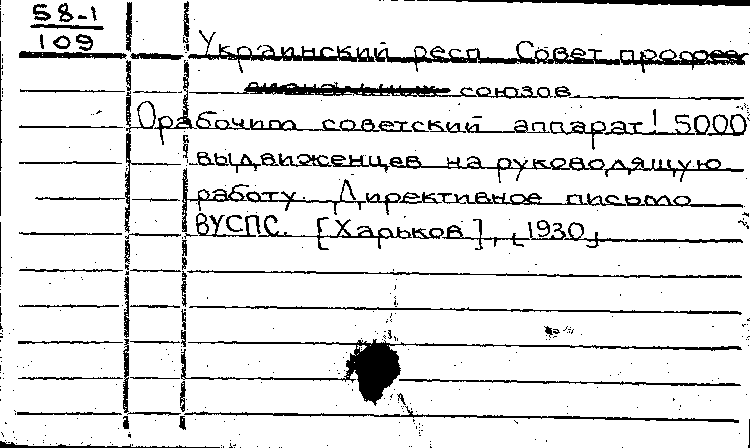 58-1
109
Украинский респ. Совет профес
союзов.
Орабочим советский аппарат! 5000
выдвиженцев на руководящую
работу. Директивное письмо
ВУСПС. [Харьков], [1930]